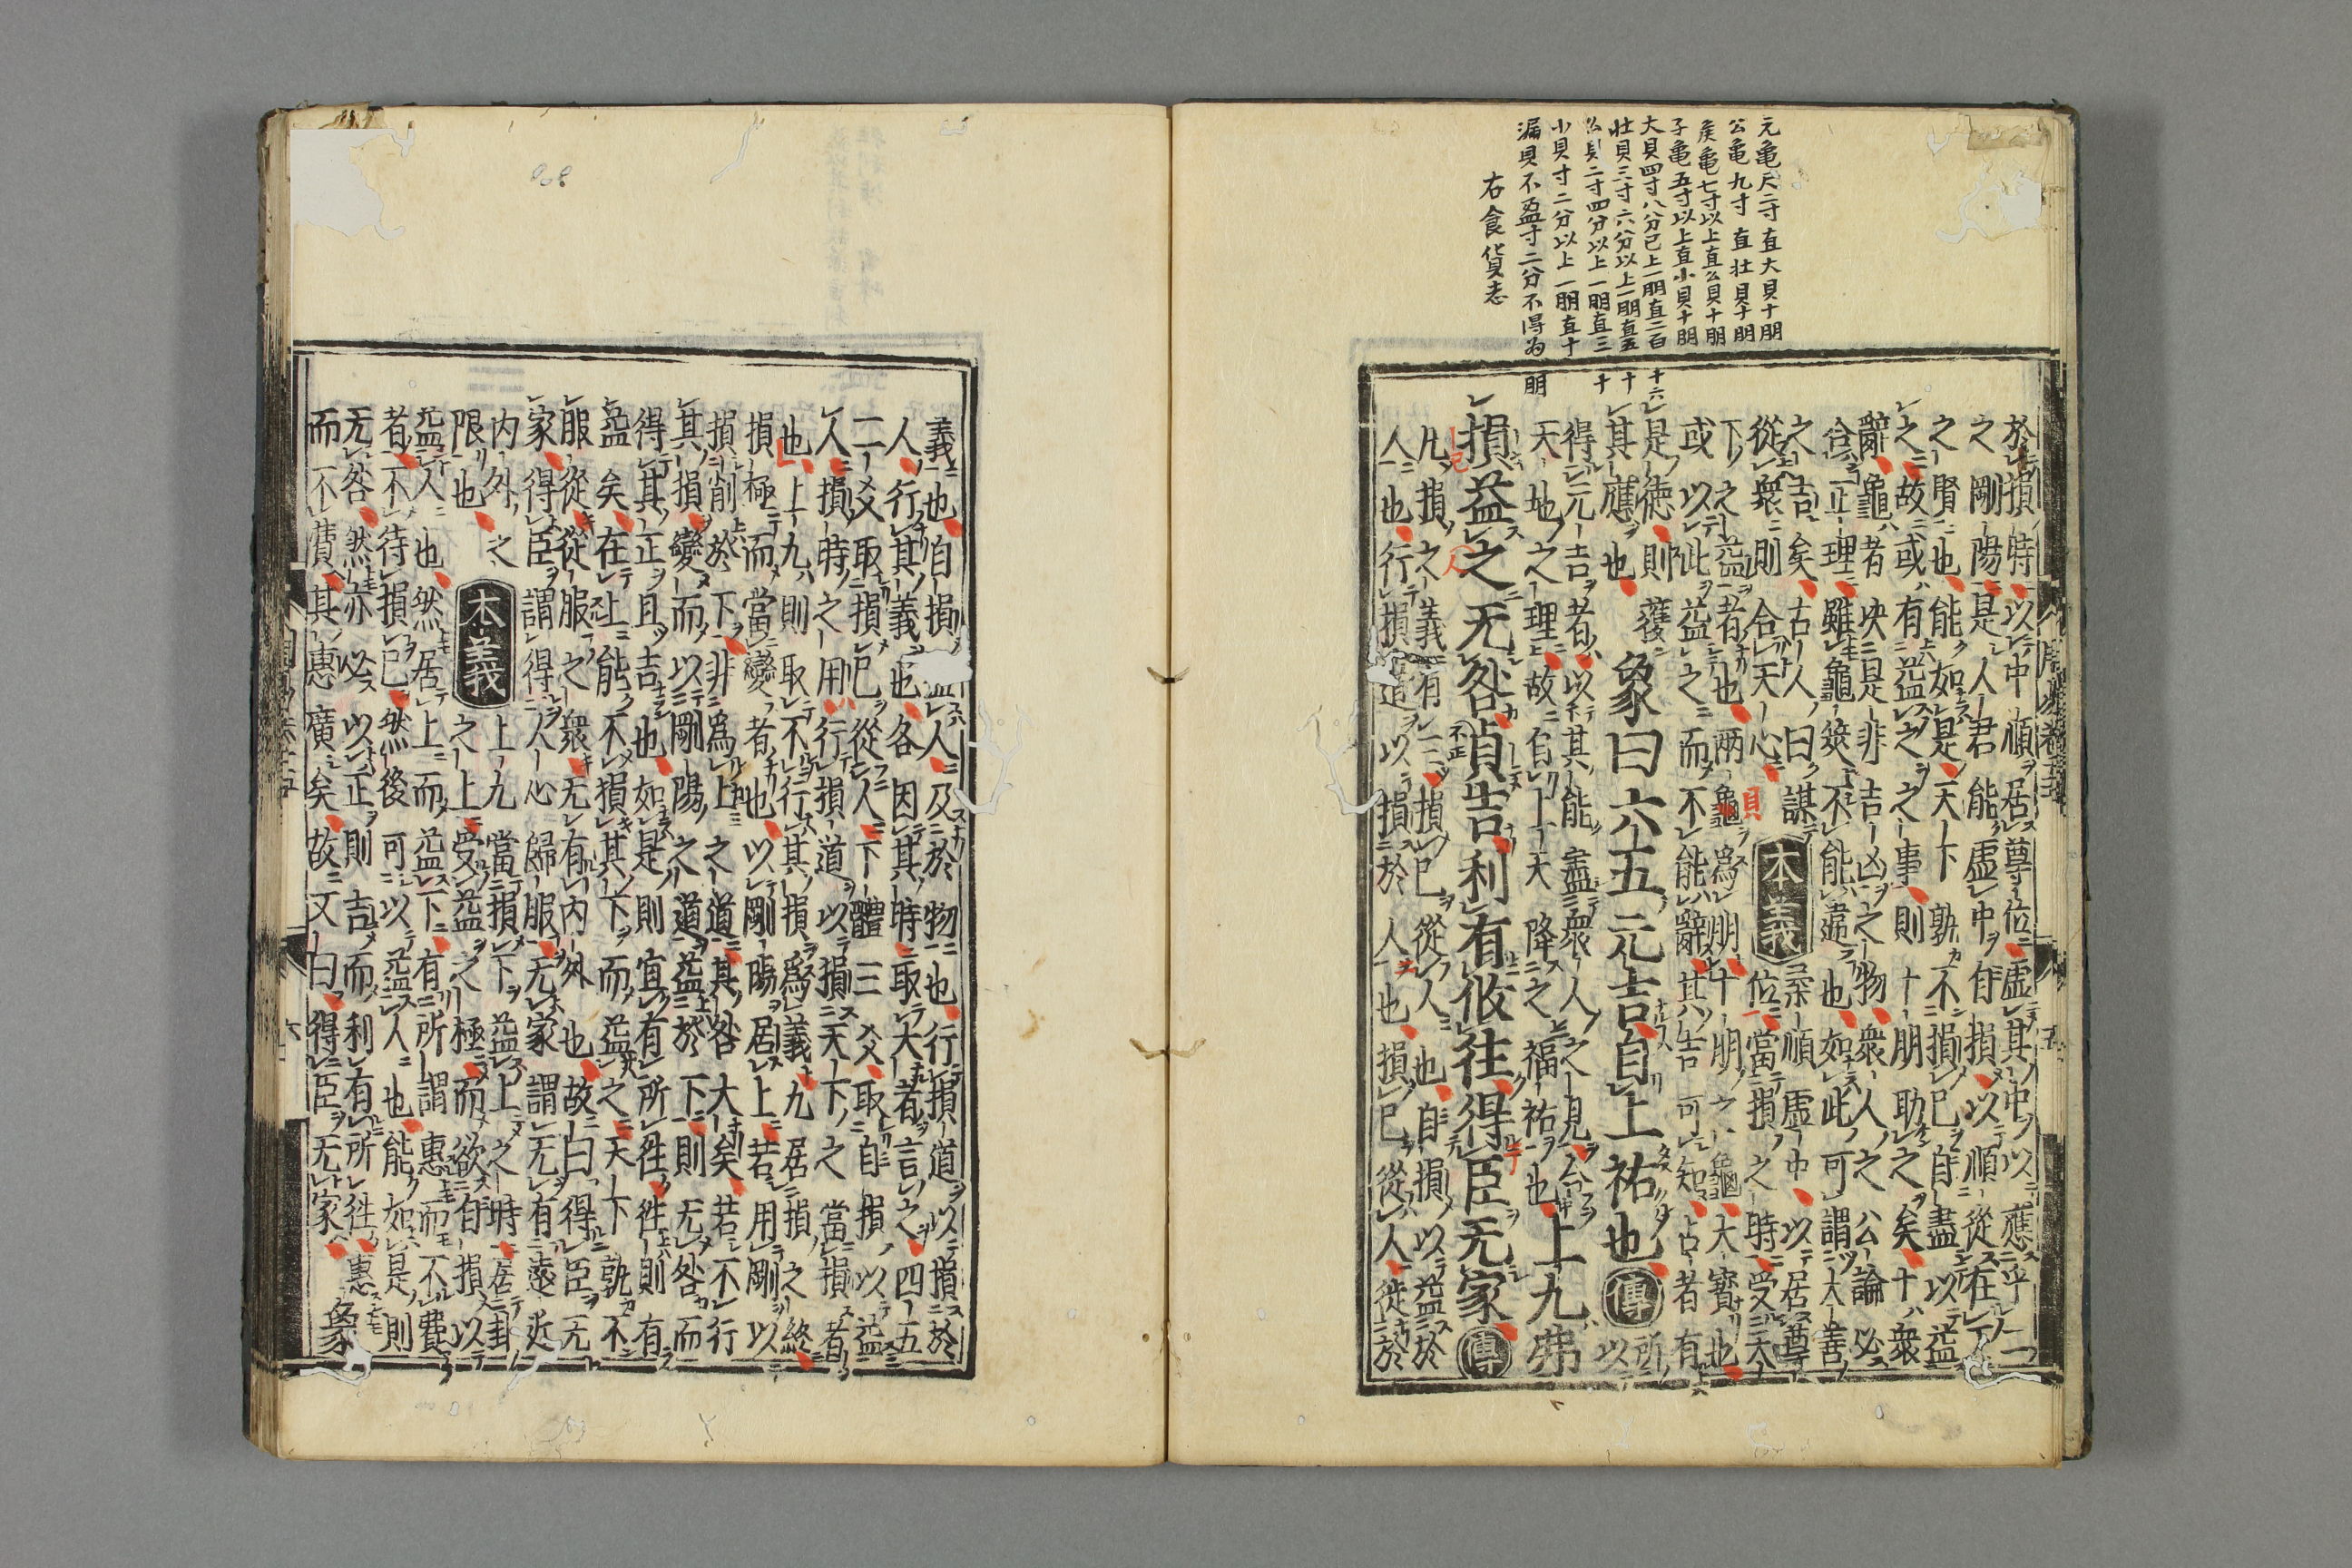 元亀尺二寸直大貝十朋
公亀九寸直壮貝十朋
侯亀七寸以上直么貝十朋
子亀五寸以上直小貝十朋
大貝四寸八分已上一朋直二百十六
壮貝三寸六分以上一朋直五十
么貝二寸四分以上一朋直三十
小貝寸二分以上一朋直十
漏貝不盈寸二分不得為朋
右食貨志
於損時以中順居尊位虚其中以應乎二
之剛陽是人君能虚中自損以順從在下
之賢也能如是天下孰不損已自盡以益
之故或有益之之事則十朋助之矣十衆
辭龜者決是非吉凶之物衆人之公論必
合正理雖龜筴不能違也如此可謂大善
之吉矣古人曰謀
從衆則合天心
本義
柔順虚中以居尊
位當損之時受天
下之益者也兩龜為朋十朋之龜大寶也
或以此益之而不能辭其吉可知占者有
是德則獲
其應也
象曰六五元吉自上祐也
傳
所以
得元吉者以其能盡衆人之見合
天地之理故自上天降之福祐也
上九弗
損益之无咎貞吉利有攸往得臣无家
傳
凡損之義有三損已從人也自損以益於
人也行損道以損於人也損已從人徙於
義也自損益人及於物也行損道以損於
人行其義也各因其時取大者言之四五
二爻取損已從人下體三爻取自損以益
人損時之用行損道以損天下之當損者
也上九則取不行其損為義九居損之終
損極而當變者也以剛陽居上若用剛以
損削於下非為上之道其咎大矣若不行
其損變而以剛陽之道益於下則无咎而
得其正且吉也如是則宜有所往往則有
益矣在上能不損其下而益之天下孰不
服從從服之衆无有內外也故曰得臣无
家得臣謂得人心歸服无家謂无有遠近
內外之
限也
本義
上九當損下益上之時居卦
之上受益之極而欲自損以
益人也然居上而益下有所謂惠而不費
者不待損已然後可以益人也能如是則
无咎然亦必以正則吉而利有所往惠
而不費其惠廣矣故又曰得臣无家
象